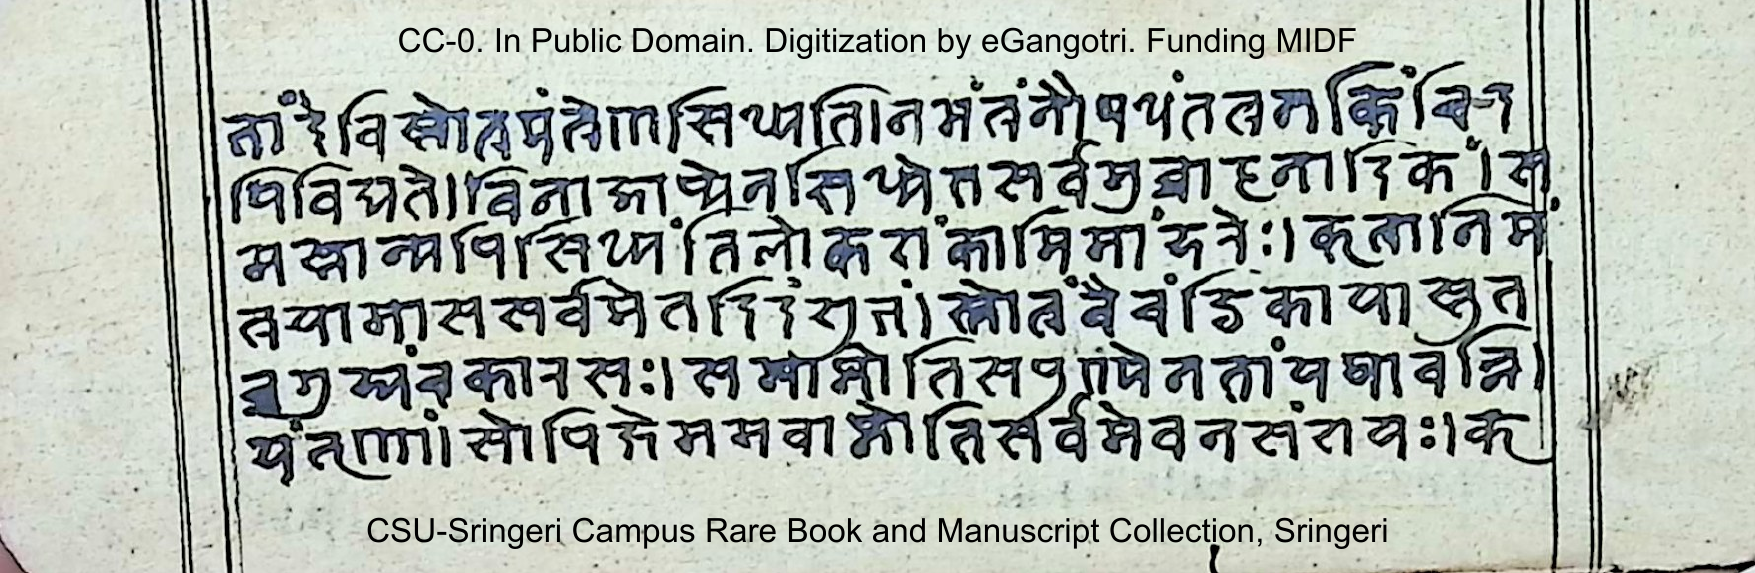 CC-0. In Public Domain. Digitization by eGangotri. Funding MIDF
तां देवि स्तोत्रमंत्रेण सिध्यति। न मंत्रं नौषधं तत्र न किंचिद
पि विद्यते। विना जाप्येन सिध्येत सर्वमुच्चाटनादिकं। स
मस्तान्यपि सिध्यंति लोकशंकामिमां हरः। कृत्वा निमं
त्रयामास सर्वमेतदिदं शुभं। स्तोत्रं वै चंडिकायास्तु त
च्च गुह्यं चकार सः। समाप्नोति स पुण्येन तां यथावन्नि
यंत्रणां। सोपि क्षेममवाप्नोति सर्वमेव न संशयः। कृ
CSU-Sringeri Campus Rare Book and Manuscript Collection, Sringeri